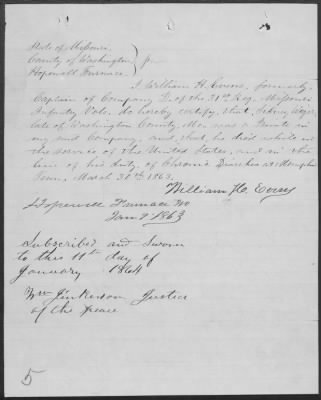 State of Missouri
County of Washington
Hopewell Furnace
I William H. Evens, formerly
Captain of Company D. of the 31st Reg. Missouri
Infantry Vols. do hereby certify, that,
late of Washington County, Mo. was a Private in
my said Company and, that, he died while in
the service of the United States, and in the
line of his duty of Chronic Diarhea at Memphis
Tenn. March 31st 1863.
William H. Evens
Hopewell Furnace Mo
Jan 9 1863
Subscribed and Sworn
to this 11th day of
January 1864
Wm Jinkerson Justice
of the peace
5